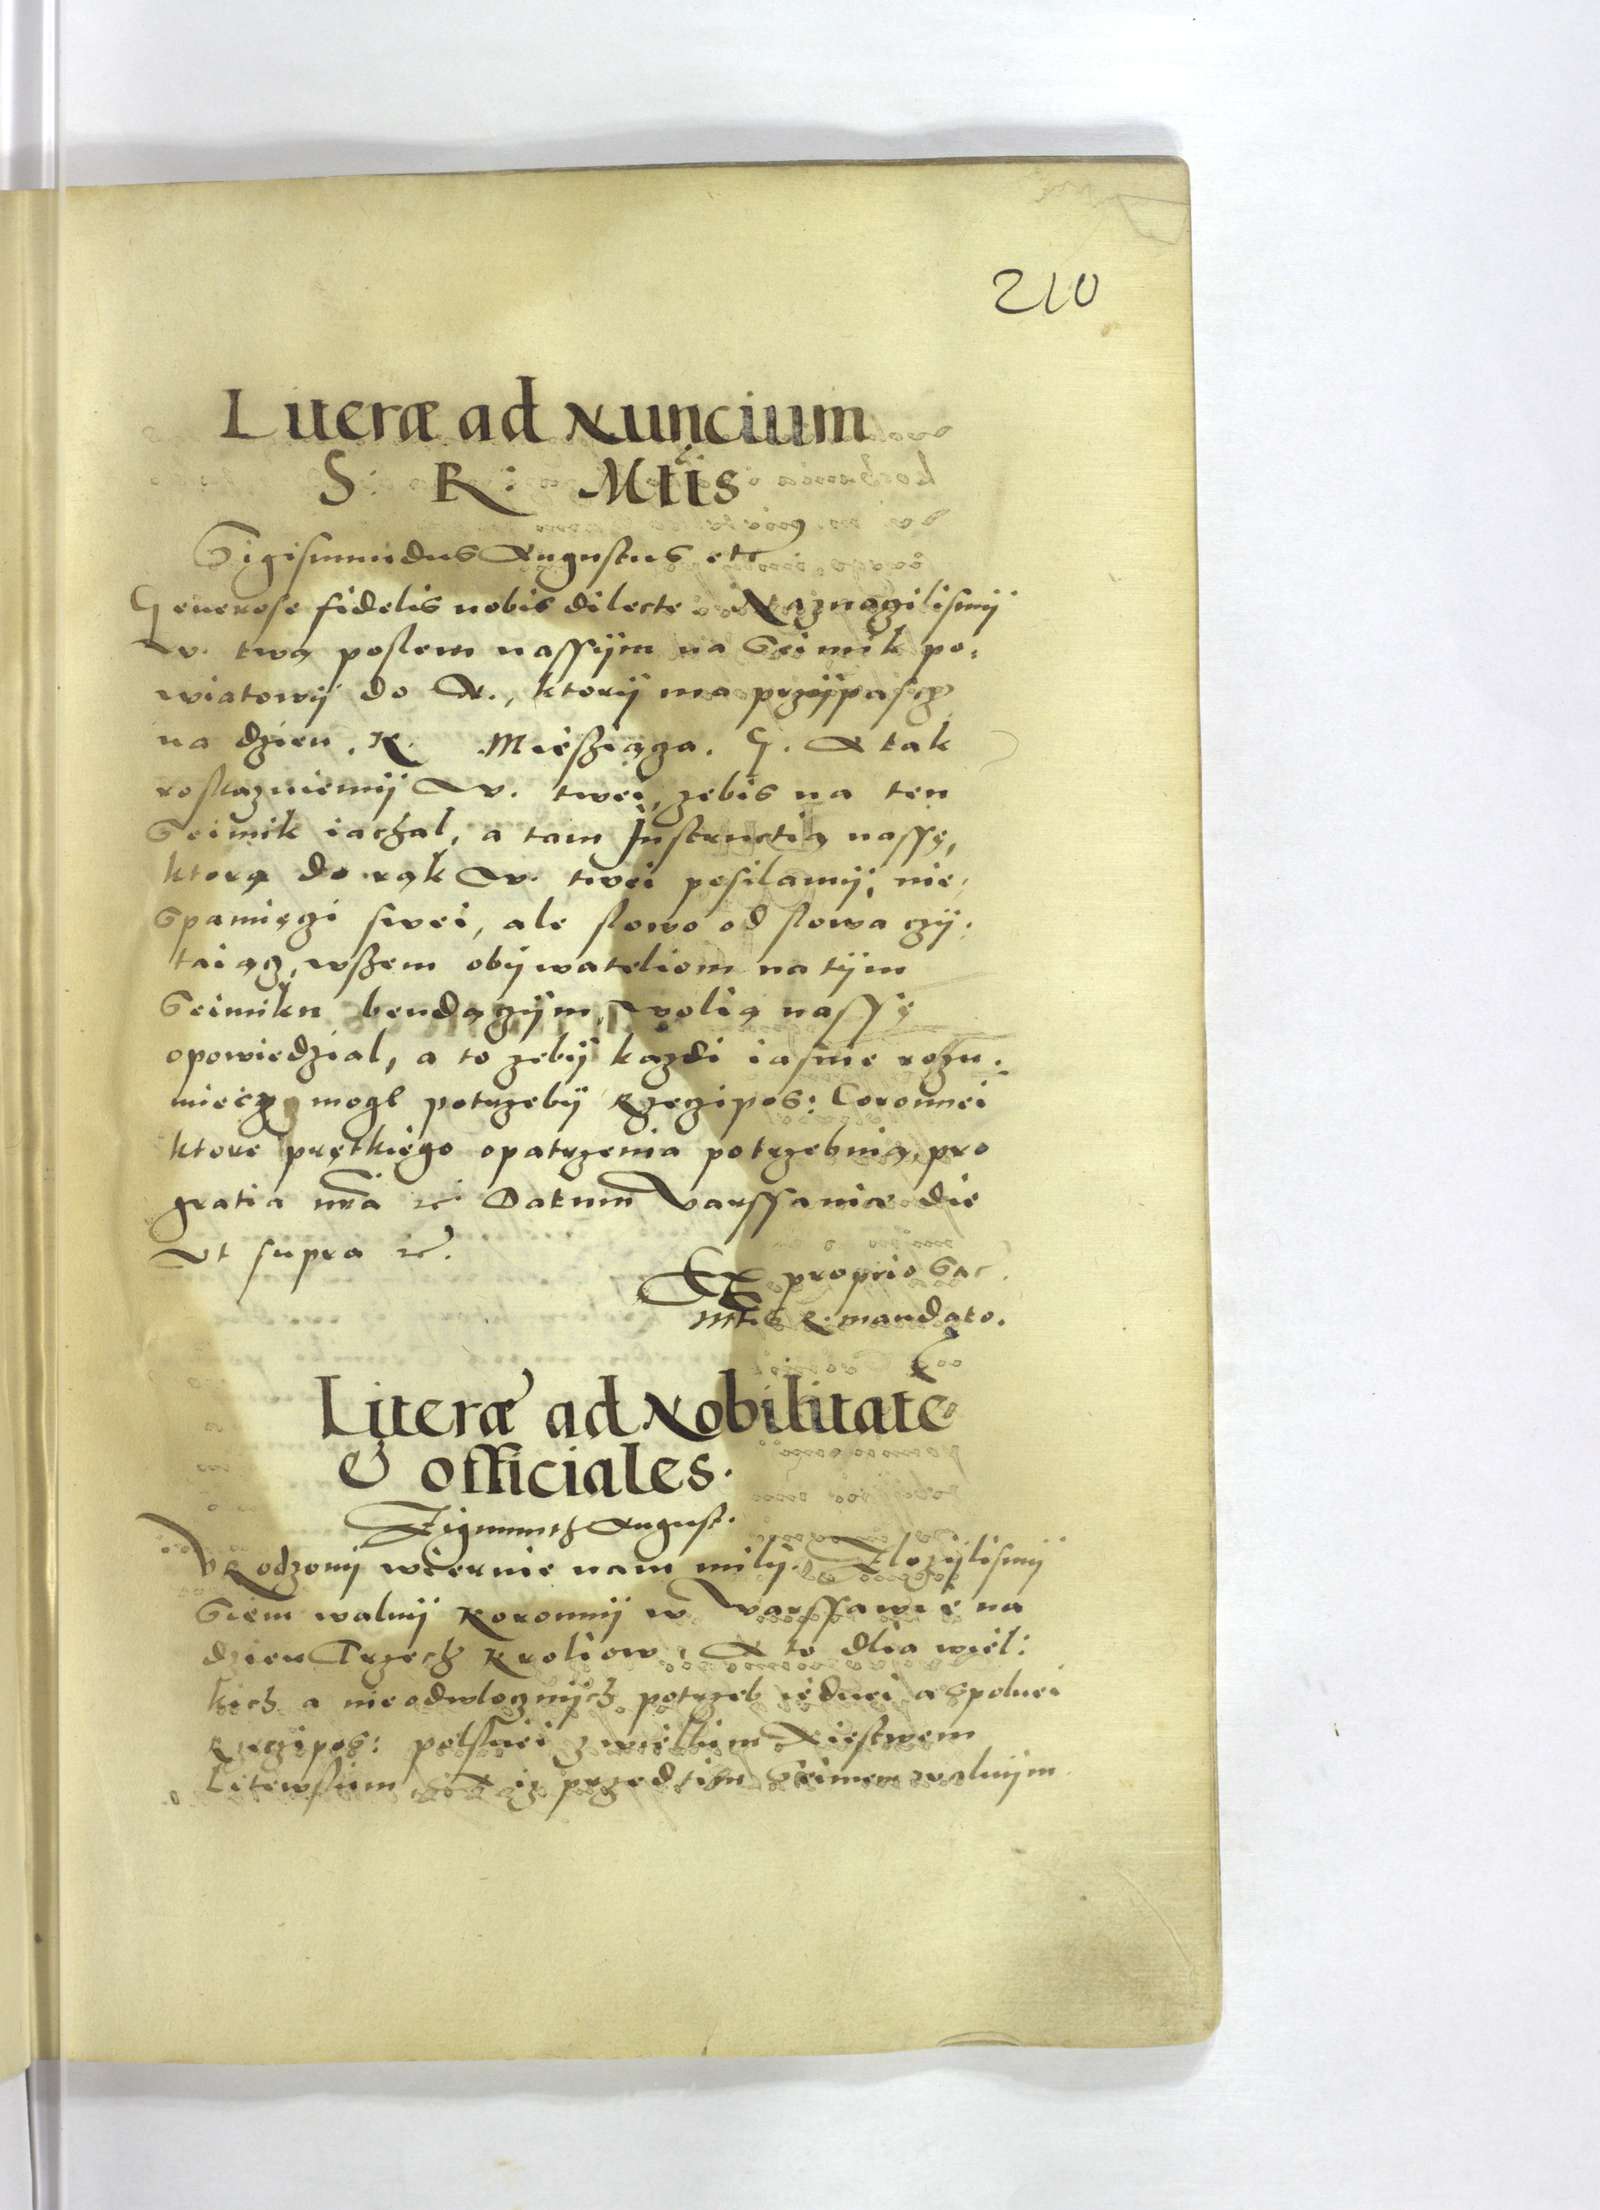 210
Literæ ad Nuncium
S: R: Mtis
Sigismundus Augustus etc
Generose fidelis nobis dilecte. Naznaczilismÿ
W. twą poslem nassÿm na Seimik po:
wiatowÿ do A., ktorÿ ma przÿpascz
na dzien. K. Miesząza. G. A tak
roskazuiemÿ W. twei, zebis na ten
Seimik iachal, a tam Instructią nassę,
ktorą do rąk W. twei posilamÿ, nie
s pamięczi swei, ale slowo od slowa czÿ:
taiącz, wszem obÿwateliom na tÿm
Seimiku bendączÿm, wolią nassę
opowiedzial, a to zebÿ kazdi iasnie rozu:
miecz mogl potrzebÿ Rzeczipos: Coronnei
ktore prętkiego opatrzenia potrzebuią, pro
gratia nra etc Datum Varssaniæ die
Vt supra etc.
Ex proprio Sac.
Mtis R. mandato.
Literæ ad Nobilitatē
& officiales.
Zigmunth August.
Vrodzonÿ wiernie nam milÿ. Zlozÿlismÿ
Siem walnÿ Koronnÿ w Varssawię na
dzien Trzech Kroliow, A to dlia wiel:
kich a nieodwlocznÿch potrzeb iednei a spolnei
Rzeczipos: polskiei z wielkim Xiestwem
Litewskim A iz przed tim Seimem walnÿm